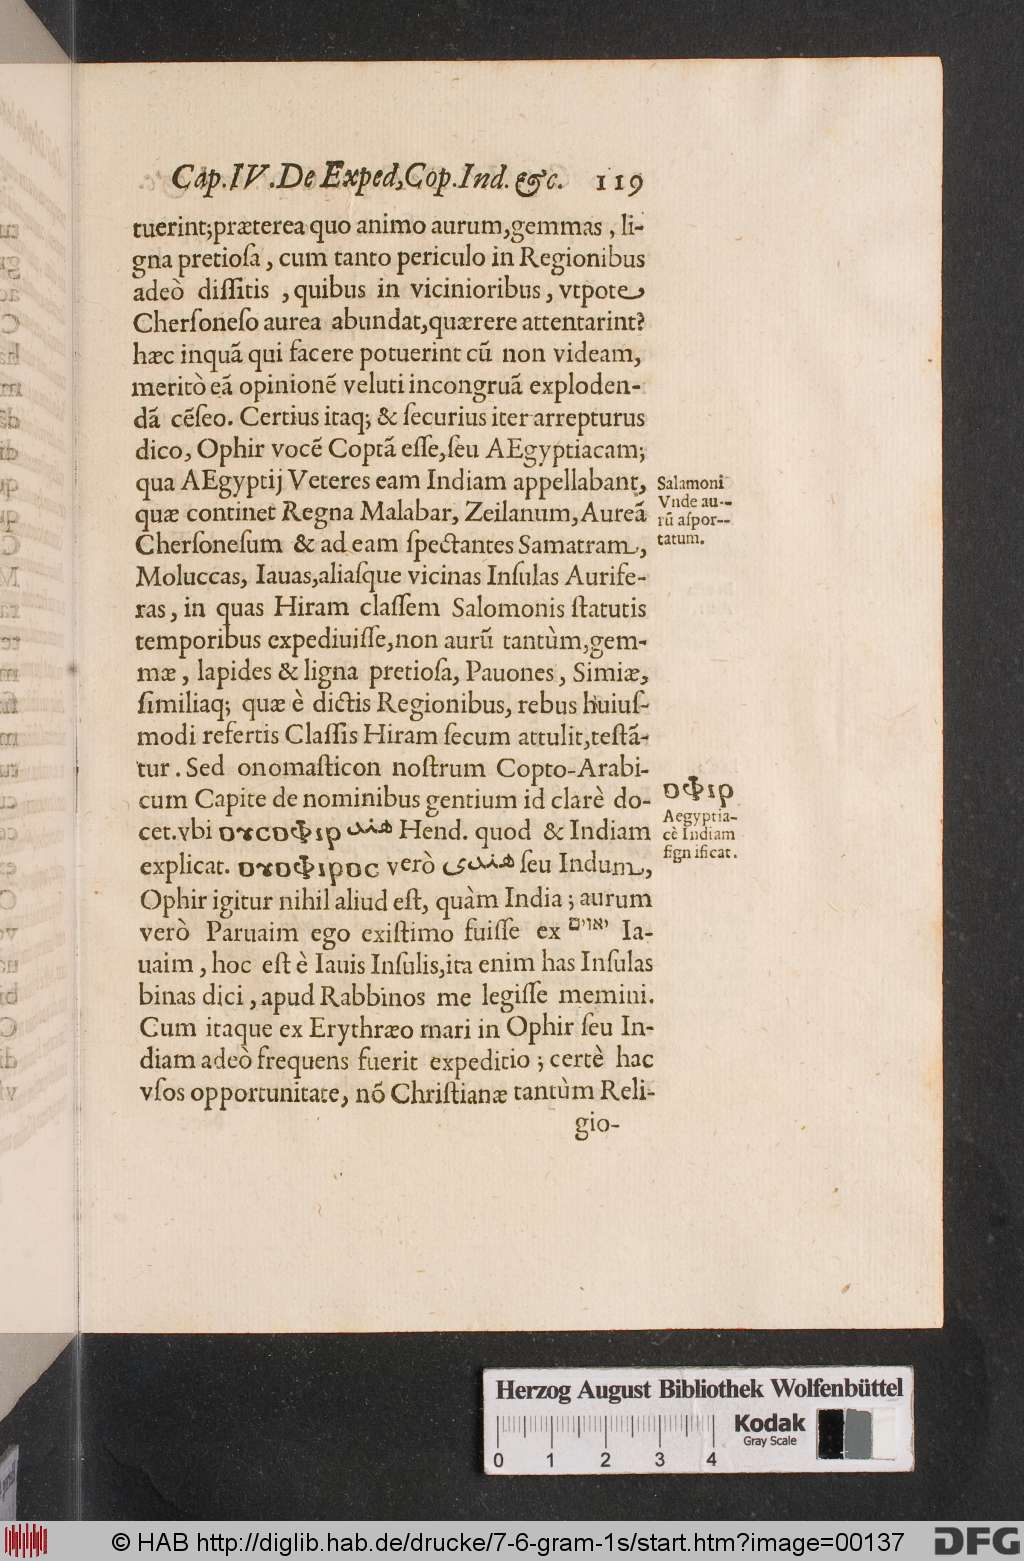 Cap.IV.De Exped,Cop.Ind.&c. 119
tuerint;præterea quo animo aurum,gemmas, li-
gna pretioſa, cum tanto periculo in Regionibus
adeò diſſitis, quibus in vicinioribus, vtpote
Cherſoneſo aurea abundat,quærere attentarint?
hæc inquã qui facere potuerint cũ non videam,
meritò eã opinionẽ veluti incongruã exploden-
dã cẽſeo. Certius itaq; & ſecurius iter arrepturus
dico, Ophir vocẽ Coptã eſſe,ſeu AEgyptiacam;
qua AEgyptij Veteres eam Indiam appellabant,
quæ continet Regna Malabar, Zeilanum, Aureã
Cherſoneſum & ad eam ſpectantes Samatram,
Moluccas, Iauas,aliaſque vicinas Inſulas Aurife-
ras, in quas Hiram claſſem Salomonis ſtatutis
temporibus expediuiſſe,non aurũ tantùm,gem-
mæ, lapides & ligna pretioſa, Pauones, Simiæ,
ſimiliaq; quæ è dictis Regionibus, rebus huiuſ-
modi refertis Claſſis Hiram ſecum attulit,teſtã-
tur. Sed onomaſticon noſtrum Copto-Arabi-
cum Capite de nominibus gentium id clarè do-
cet.vbi ⲟⲩⲥⲟⲫⲓⲣ هند Hend. quod & Indiam
explicat. ⲟⲩⲟⲫⲓⲣⲟⲥ verò هندى ſeu Indum,
Ophir igitur nihil aliud eſt, quàm India; aurum
verò Paruaim ego exiſtimo fuiſſe ex יאוים Ia-
uaim, hoc eſt è Iauis Inſulis,ita enim has Inſulas
binas dici, apud Rabbinos me legiſſe memini.
Cum itaque ex Erythræo mari in Ophir ſeu In-
diam adeò frequens fuerit expeditio; certè hac
vſos opportunitate, nõ Chriſtianæ tantùm Reli-
gio-
Salamoni
Vnde au--
rũ aſpor--
tatum.
ⲟⲫⲓⲣ
Aegyptia-
cè Indiam
ſignificat.
Herzog August Bibliothek Wolfenbüttel
0 1 2 3 4
Kodak
Gray Scale
© HAB http://diglib.hab.de/drucke/7-6-gram-1s/start.htm?image=00137
DFG